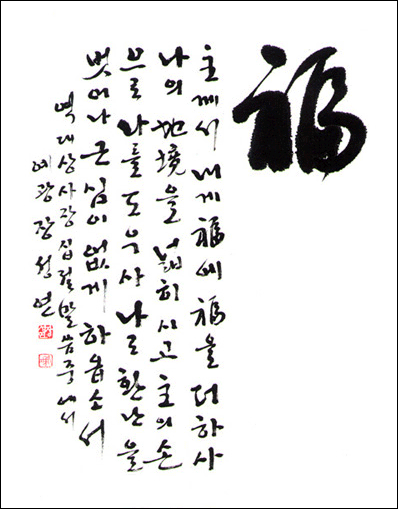 福
主께서 내게 福에 福을 더하사
나의 地境을 넓히시고 主의 손
으로 나를 도우사 나로 환난을
벗어나 근심이 없게 하옵소서
역대상 사장 십절 말씀중에서
예광 장성연